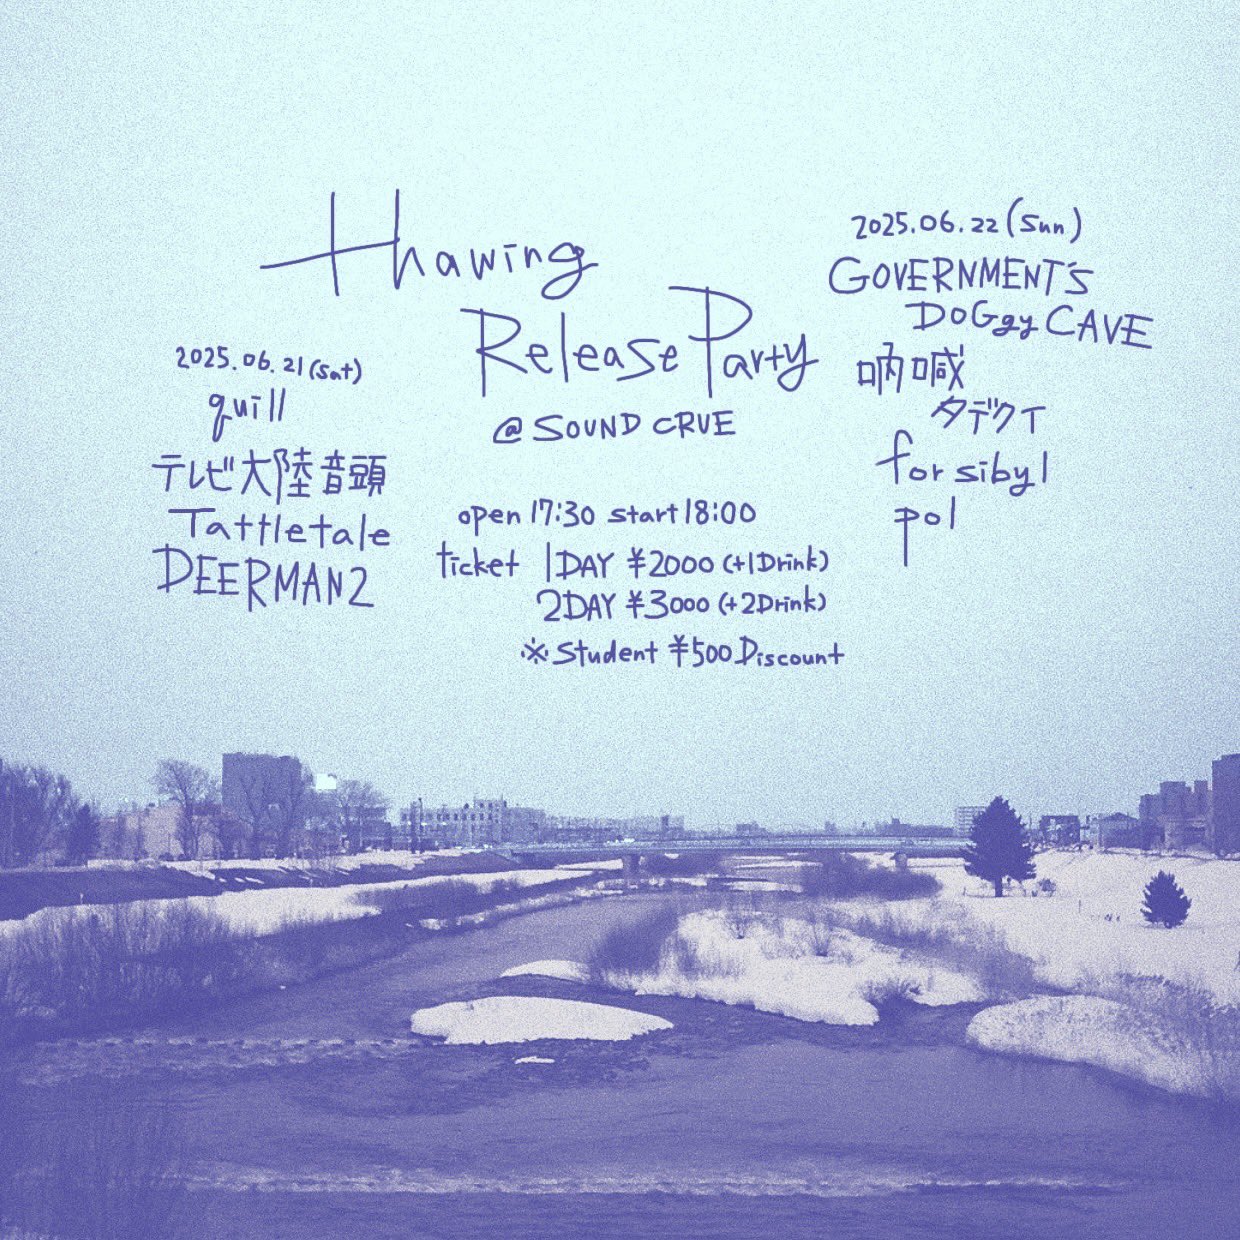 thawing
Release Party
@ SOUND CRUE
2025.06.21(Sat)
quill
テレビ大陸音頭
Tattletale
DEERMAN2
2025.06.22(Sun)
GOVERNMENT'S
DOGgy CAVE
吶喊
タデクイ
for sibyl
pol
open 17:30 start 18:00
ticket 1DAY ¥2000 (+1Drink)
2DAY ¥3000 (+2Drink)
※Student ¥500 Discount